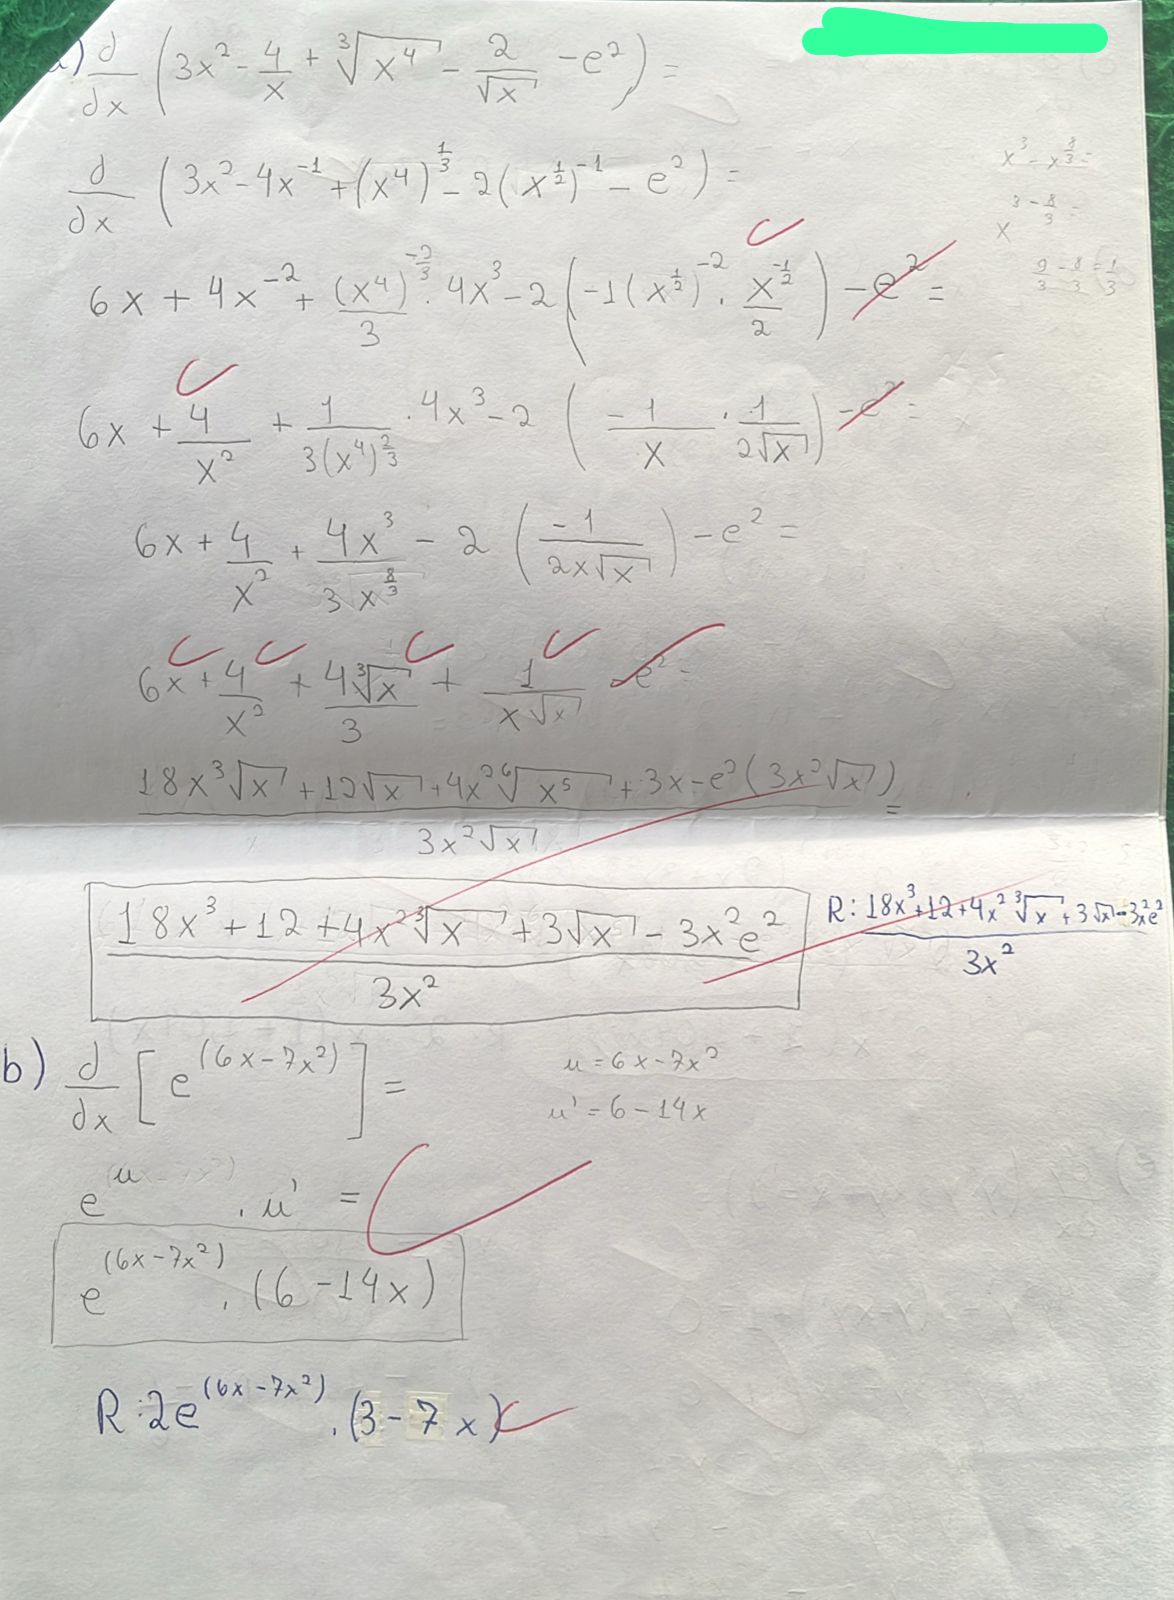 a) d/dx (3x² - 4/x + ∛(x⁴) - 2/√x - e²) =
d/dx (3x² - 4x⁻¹ + (x⁴)^(1/3) - 2(x^(1/2))⁻¹ - e²) =
6x + 4x⁻² + (x⁴)^(-2/3)/3 · 4x³ - 2(-1(x^(1/2))⁻² · x^(-1/2)/2) - e² =
6x + 4/x² + 1/(3(x⁴)^(2/3)) · 4x³ - 2(-1/x · 1/(2√x)) - e² =
6x + 4/x² + 4x³/(3√x^(8/3)) - 2(-1/(2x√x)) - e² =
6x + 4/x² + 4∛x/3 + 1/(x√x) - e² =
(18x³√x + 12√x + 4x² ⁶√(x⁵) + 3x - e²(3x²√x))/(3x²√x) =
(18x³ + 12 + 4x²∛x + 3√x - 3x²e²)/(3x²)
R: (18x³ + 12 + 4x²∛x + 3√x - 3x²e²)/(3x²)
x³ - x^(8/3) =
x^(3 - 8/3) =
9/3 - 8/3 = 1/3
b) d/dx [e^(6x-7x²)] =
u = 6x - 7x²
u' = 6 - 14x
e^u · u' =
e^(6x-7x²) · (6 - 14x)
R: 2e^(6x-7x²) · (3 - 7x)